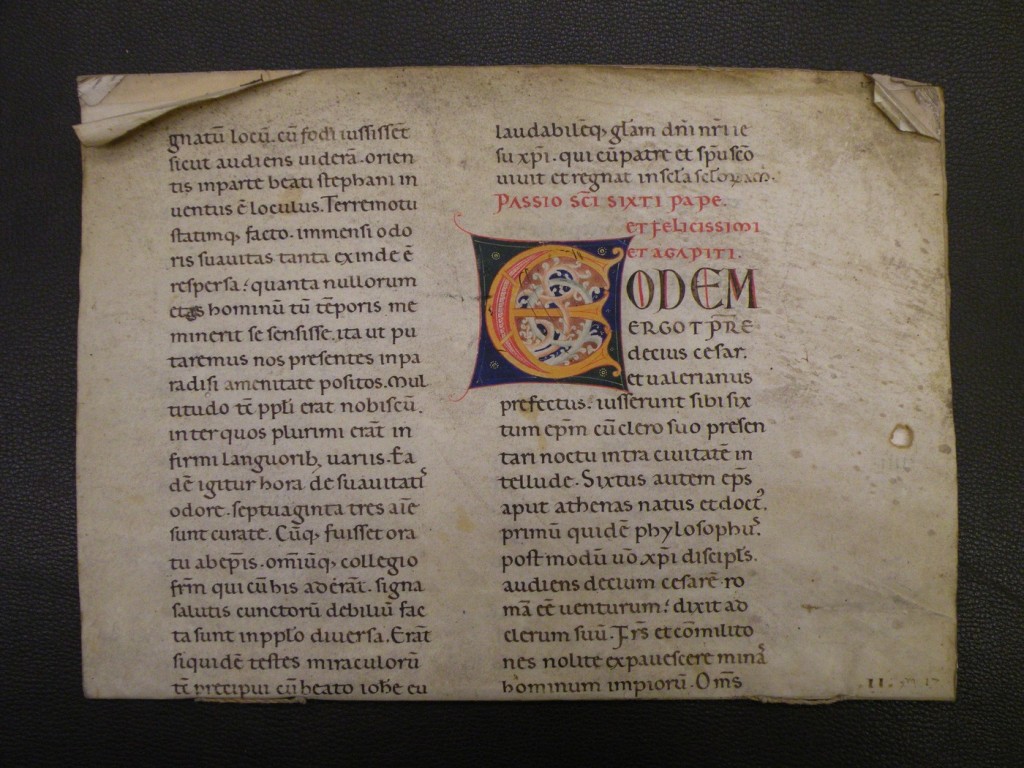 gnatū locū. cū fodi iussissēt
sicut audiens uiderā. orien
tis inparte beati stephani in
uentus ē loculus. Terremotu
statimq; facto. immensi odo
ris suauitas tanta exinde ē
respersa: quanta nullorum
hominū tū tēporis me
minerit se sensisse. ita ut pu
taremus nos presentes inpa
radisi amenitate positos. Mul
titudo tē ppli erat nobiscū.
inter quos plurimi erāt in
firmi languorib; uariis. Ea
dē igitur hora de suauitatꝭ
odore. septuaginta tres aīe
sunt curate. Cūq; fuisset ora
tu abepīs. omīuq; collegio
frm̄ qui cū his aderāt. signa
salutis cunctorū debiliū fac
ta sunt inpplo diuersa. Erāt
siquidē testes miraculorū
tē precipui cū beato iohe eu
laudabilēq; glam dn̄i nr̄i ie
su xp̄i. qui cū patre et sp̄u sc̄o
uiuit et regnat in sc̄la sc̄lorꝝ
PASSIO SC̄I SIXTI PAPE.
ET FELICISSIMI
ET AGAPITI.
EODEM
ERGO TP̄RE
decius cesar.
et ualerianus
prefectus. iusserunt sibi six
tum ep̄m cū clero suo presen
tari noctu intra ciuitatē in
tellude. Sixtus autem ep̄s
aput athenas natus et doctꝰ.
primū quidē phylosophuꝰ.
postmodū uō. xp̄i discipls.
audiens decium cesarē ro
mā eē uenturum: dixit ad
clerum suū. Frs̄ et cōmilito
nes nolite expauescere minaꝰ
hominum impiorū. Om̄s